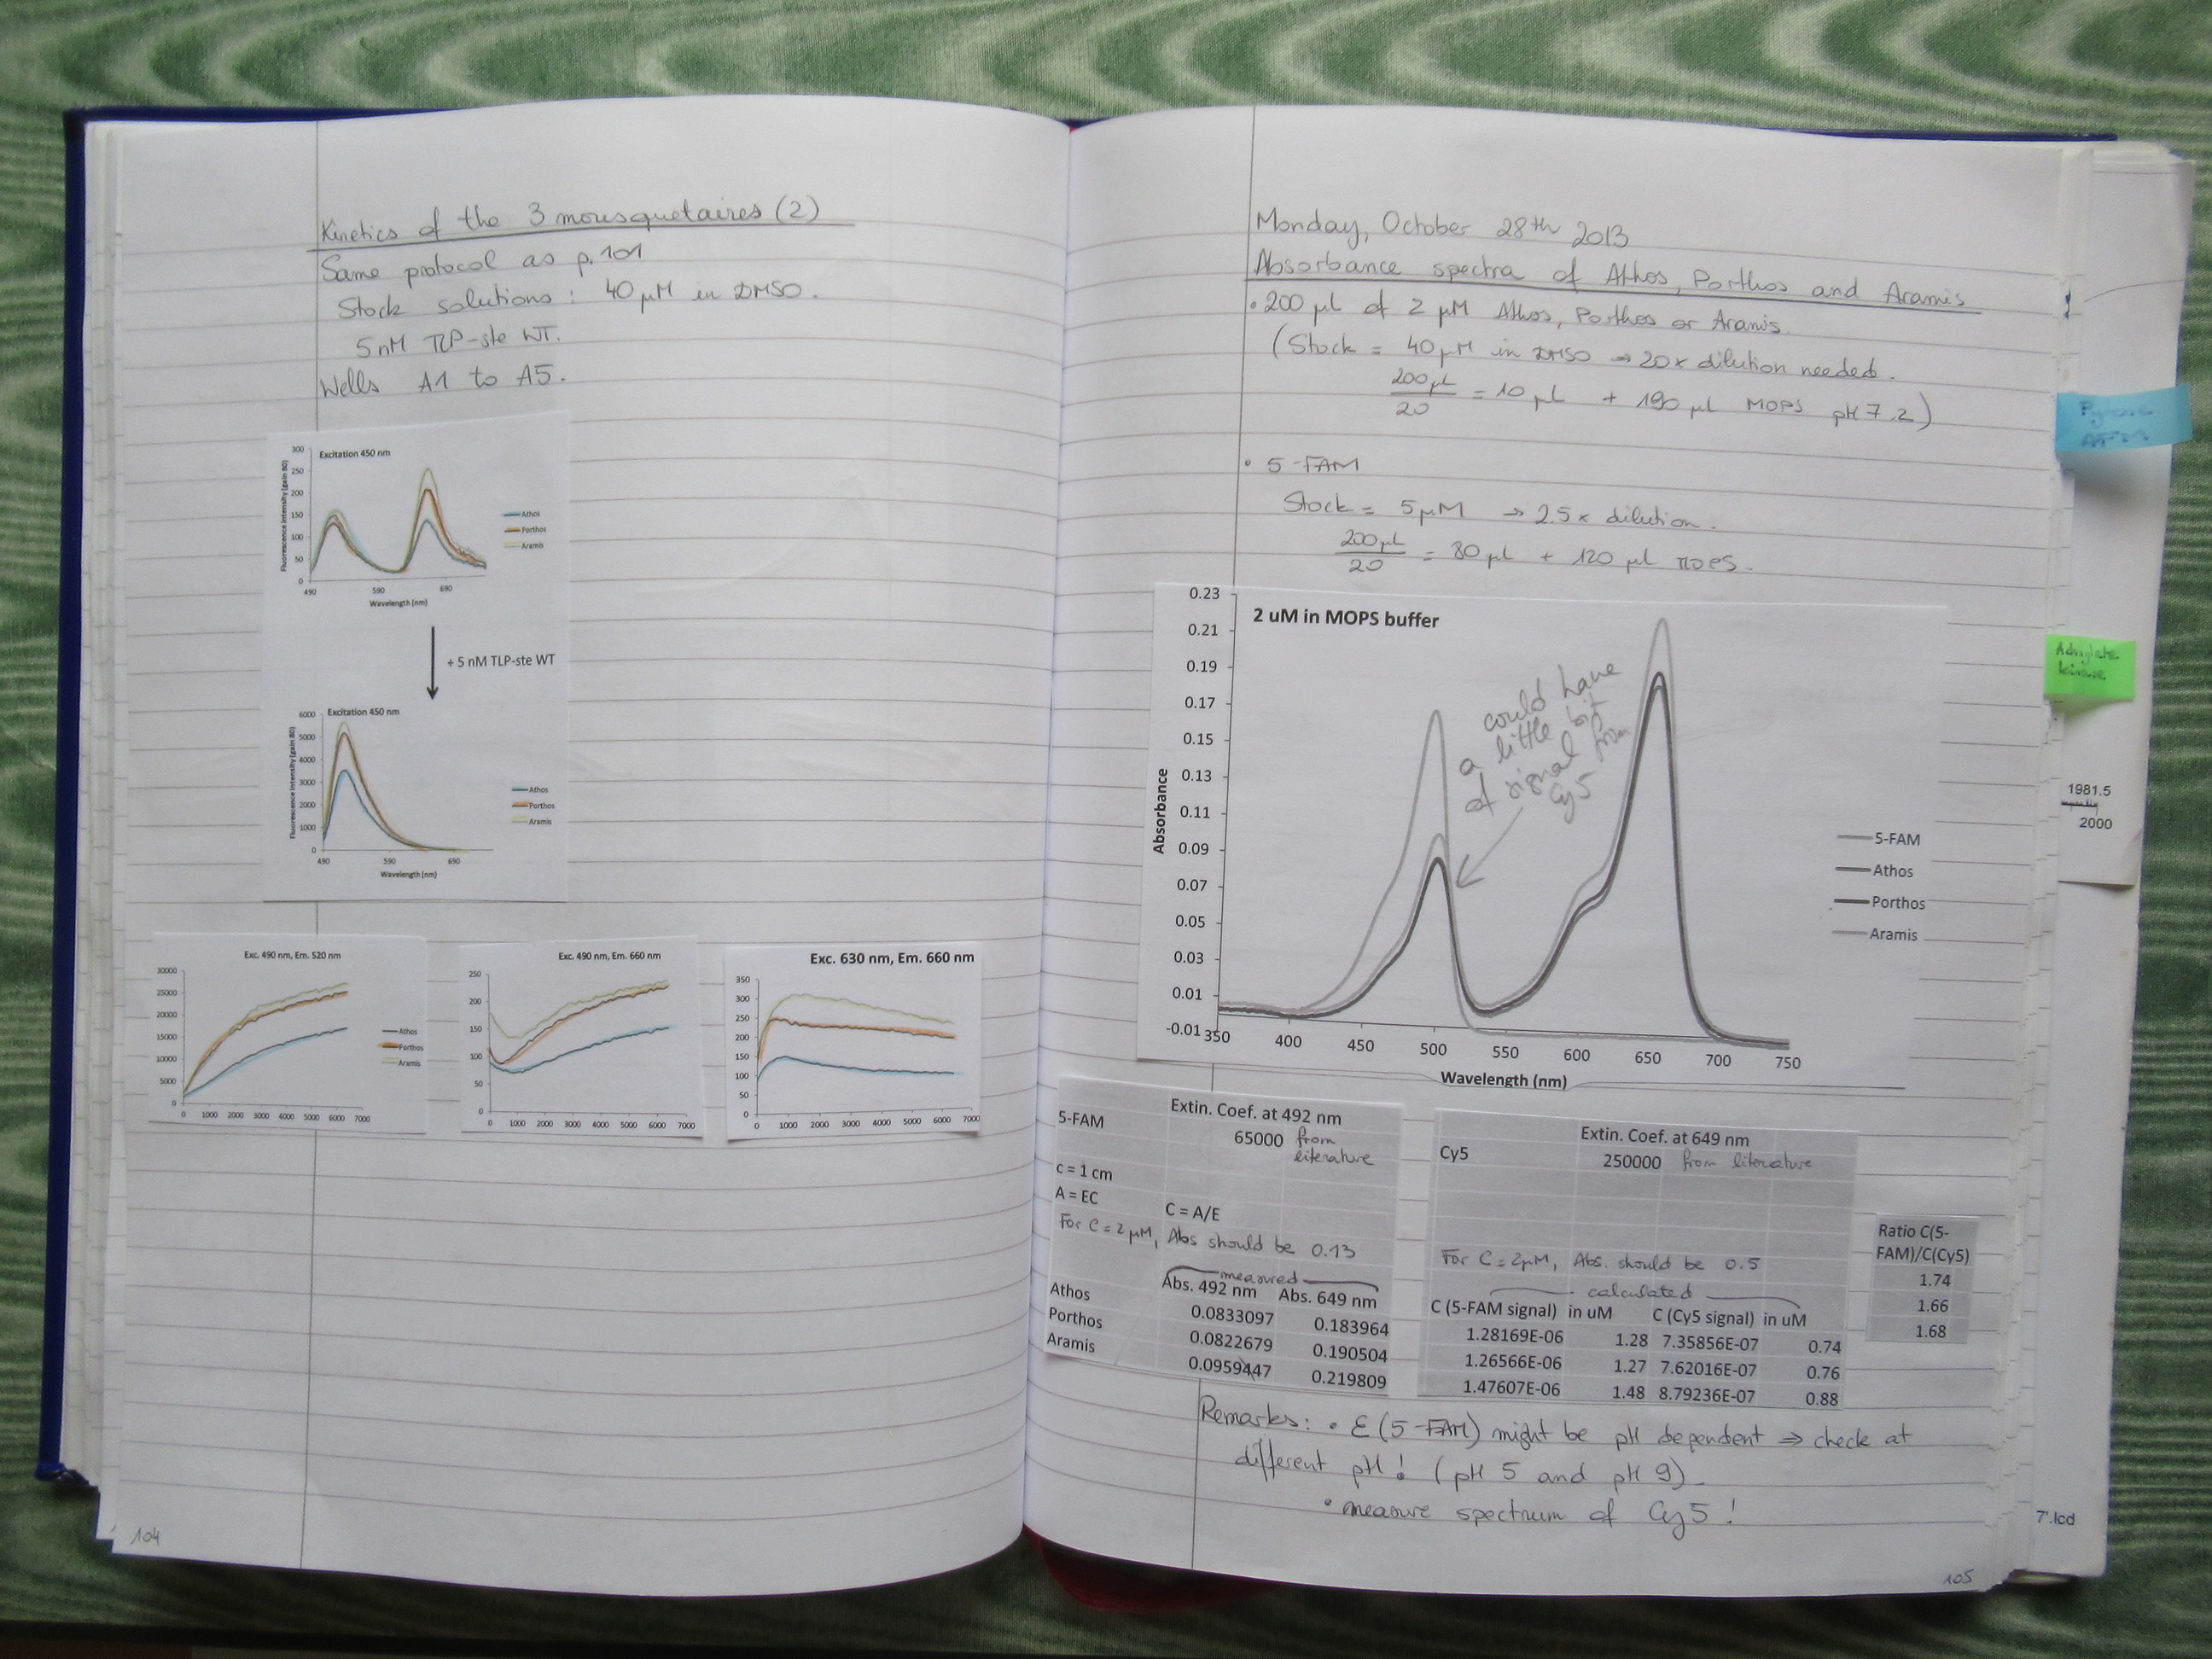 Kinetics of the 3 mousquetaires (2)
Same protocol as p.101
Stock solutions : 40 µM in DMSO.
5 nM TLP-ste WT.
Wells A1 to A5.
Excitation 450 nm
Fluorescence intensity (gain 80)
300
250
200
150
100
50
0
490 590 690
Wavelength (nm)
Athos
Porthos
Aramis
+ 5 nM TLP-ste WT
Excitation 450 nm
Fluorescence intensity (gain 80)
6000
5000
4000
3000
2000
1000
0
490 590 690
Wavelength (nm)
Athos
Porthos
Aramis
Exc. 490 nm, Em. 520 nm
30000
25000
20000
15000
10000
5000
0
0 1000 2000 3000 4000 5000 6000 7000
Athos
Porthos
Aramis
Exc. 490 nm, Em. 660 nm
250
200
150
100
50
0
0 1000 2000 3000 4000 5000 6000 7000
Exc. 630 nm, Em. 660 nm
350
300
250
200
150
100
50
0
0 1000 2000 3000 4000 5000 6000 7000
104
Monday, October 28th 2013
Absorbance spectra of Athos, Porthos and Aramis
• 200 µl of 2 µM Athos, Porthos or Aramis
(Stock = 40 µM in DMSO → 20x dilution needed.
200 µl
20
= 10 µl + 190 µl MOPS pH 7.2)
• 5-FAM
Stock = 5 µM → 2.5x dilution.
200 µl
20
= 80 µl + 120 µl MOPS.
2 uM in MOPS buffer
0.23
0.21
0.19
0.17
0.15
0.13
0.11
0.09
0.07
0.05
0.03
0.01
-0.01
Absorbance
350 400 450 500 550 600 650 700 750
Wavelength (nm)
could have
a little bit
of signal from
Cy5
5-FAM
Athos
Porthos
Aramis
5-FAM Extin. Coef. at 492 nm
65000 from
literature
c = 1 cm
A = EC C = A/E
For C = 2 µM, Abs should be 0.13
measured
Abs. 492 nm Abs. 649 nm
Athos 0.0833097 0.183964
Porthos 0.0822679 0.190504
Aramis 0.0959447 0.219809
Extin. Coef. at 649 nm
Cy5 250000 from literature
For C = 2µM, Abs. should be 0.5
calculated
C (5-FAM signal) in uM C (Cy5 signal) in uM
1.28169E-06 1.28 7.35856E-07 0.74
1.26566E-06 1.27 7.62016E-07 0.76
1.47607E-06 1.48 8.79236E-07 0.88
Ratio C(5-
FAM)/C(Cy5)
1.74
1.66
1.68
Remarks: • ε (5-FAM) might be pH dependent ⇒ check at
different pH! (pH 5 and pH 9).
• measure spectrum of Cy5 !
105
Adenylate
kinase
1981.5
2000
7'.lcd